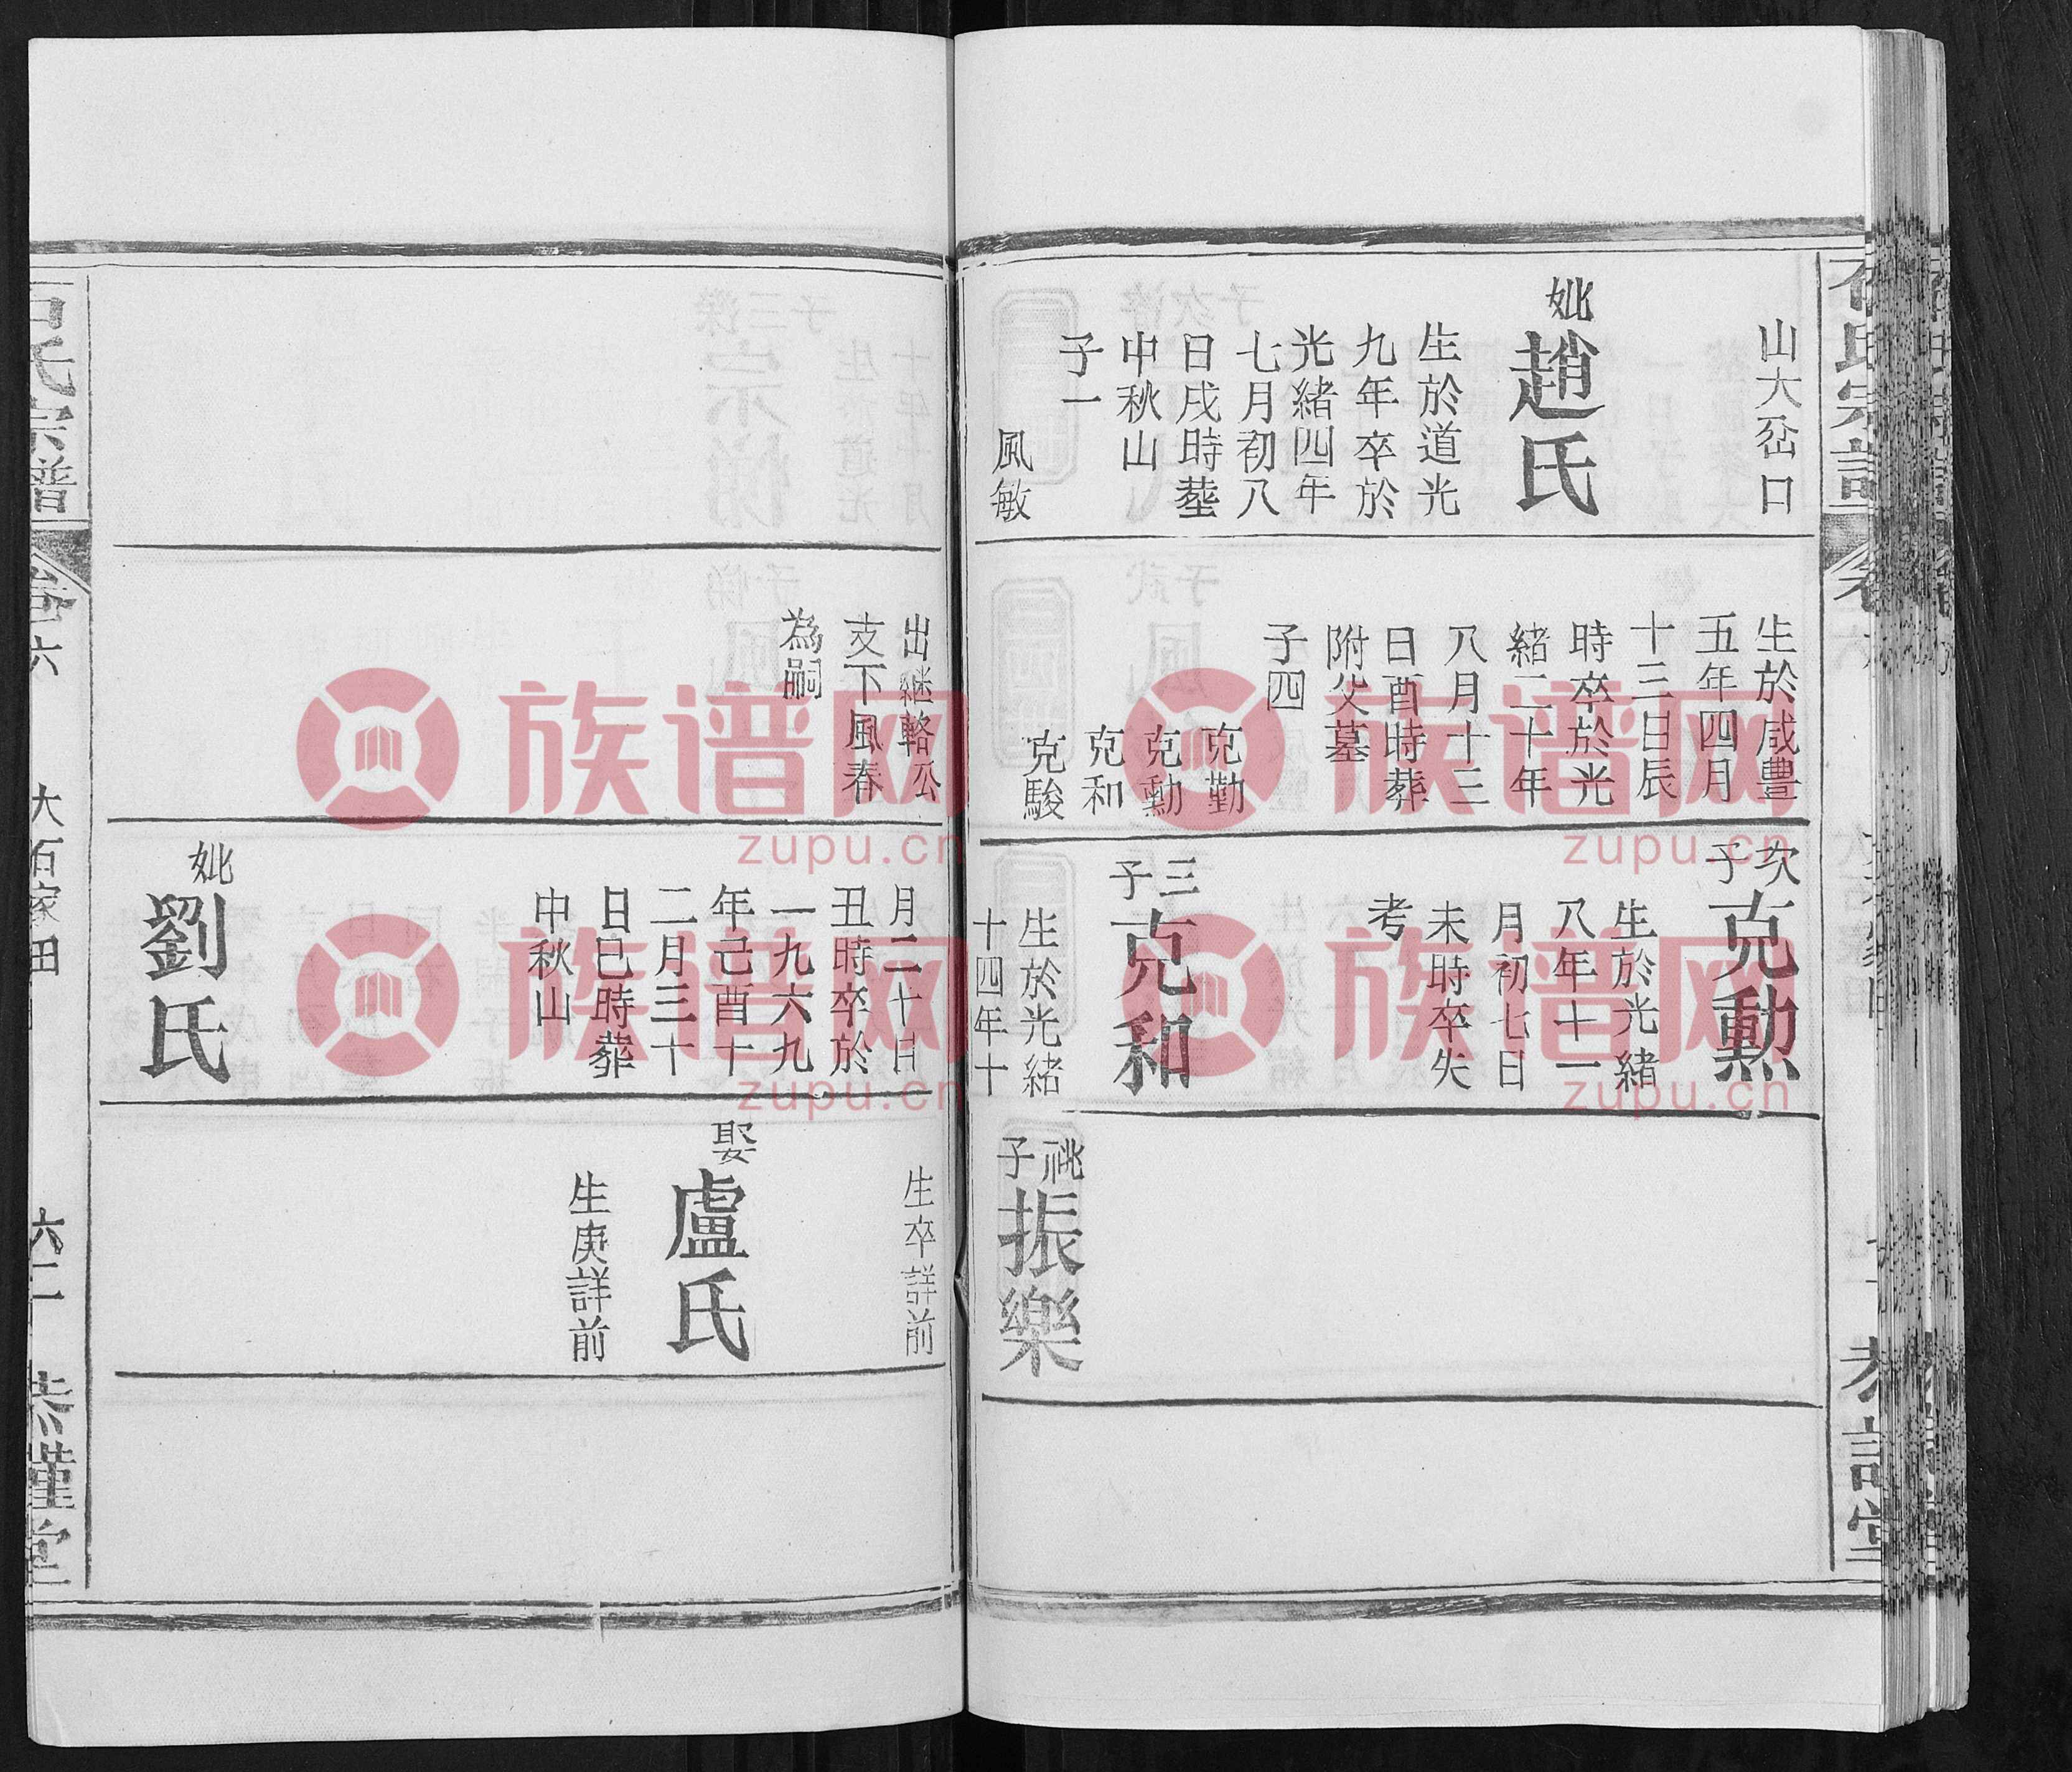 山大岔口
妣
趙氏
生於道光
九年卒於
光緒四年
七月初八
日戌時塟
中秋山
子一
風敏
生於咸豊
五年四月
十三日辰
時卒於光
緒二十年
八月十三
日酉時葬
附父墓
子四
克勤
克勳
克和
克駿
次子
克勳
生於光緒
八年十一
月初七日
未時卒失
考
三子
克和
生於光緒
十四年十
祧子
振樂
出継輅公
支下風春
為嗣
月二十日
丑時卒於
一九六九
年己酉十
二月三十
日巳時葬
中秋山
妣
劉氏
生卒詳前
娶
盧氏
生庚詳前
石氏宗譜
卷六
大石家田
六二
恭謹堂
族谱网
zupu.cn
族谱网
zupu.cn
族谱网
zupu.cn
族谱网
zupu.cn